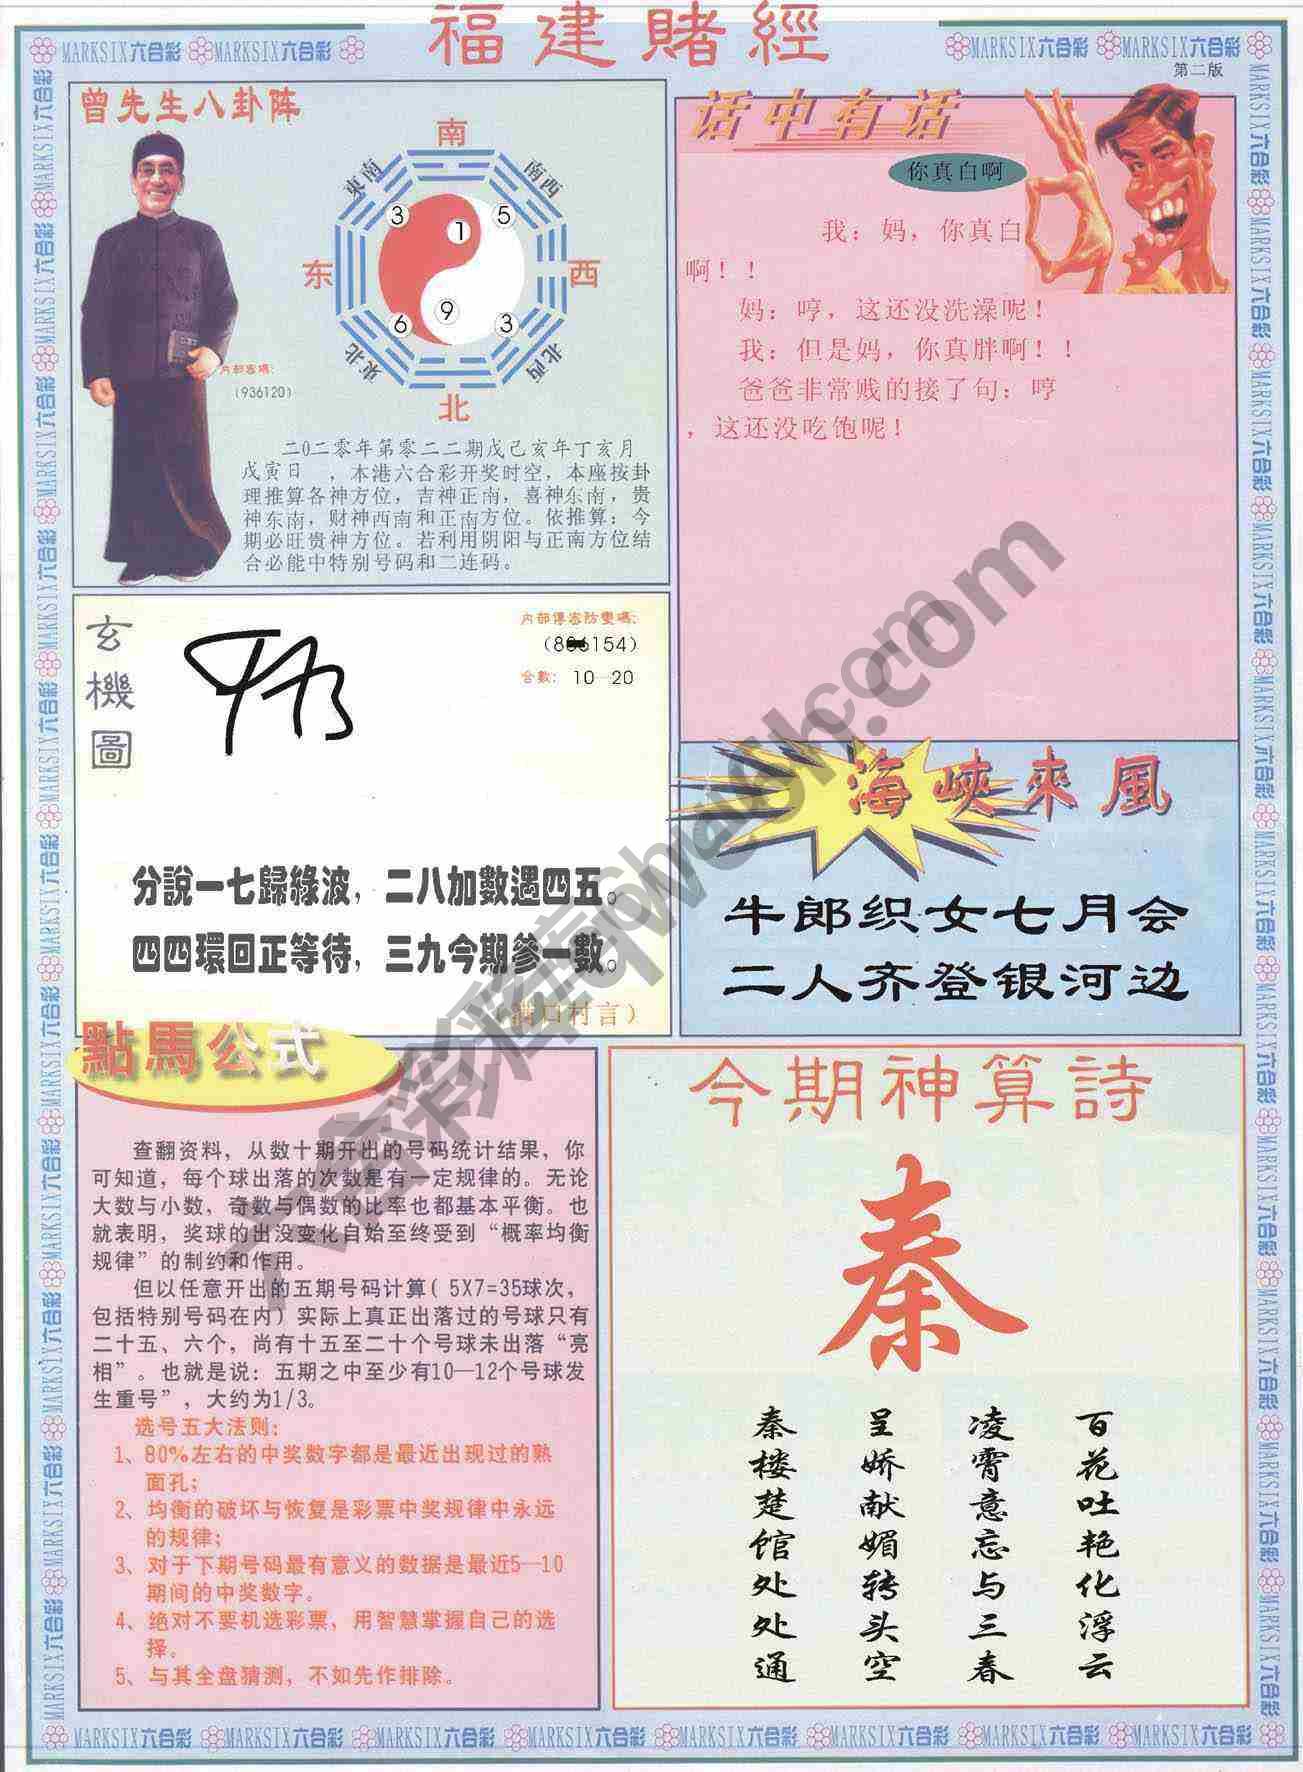 福建賭經
MARKSIX六合彩 MARKSIX六合彩
MARKSIX六合彩 MARKSIX六合彩
第二版
曾先生八卦阵
南
東南
南西
3
1
5
东
西
6
9
3
東北
北西
北
内部密碼:
(936120)
二0二零年第零二二期戊己亥年丁亥月
戊寅日 ,本港六合彩开奖时空,本座按卦
理推算各神方位,吉神正南,喜神东南,贵
神东南,财神西南和正南方位。依推算:今
期必旺贵神方位。若利用阴阳与正南方位结
合必能中特别号码和二连码。
话中有话
你真白啊
我:妈,你真白
啊!!
妈:哼,这还没洗澡呢!
我:但是妈,你真胖啊!!
爸爸非常贱的接了句:哼
,这还没吃饱呢!
玄機圖
内部傳密防變碼:
合數: 10—20
分說一七歸綠波,二八加數遇四五。
四四環回正等待,三九今期參一數。
(满口村言)
海峽來風
牛郎织女七月会
二人齐登银河边
點馬公式
查翻资料,从数十期开出的号码统计结果,你
可知道,每个球出落的次数是有一定规律的。无论
大数与小数,奇数与偶数的比率也都基本平衡。也
就表明,奖球的出没变化自始至终受到“概率均衡
规律”的制约和作用。
但以任意开出的五期号码计算( 5X7=35球次,
包括特别号码在内)实际上真正出落过的号球只有
二十五、六个,尚有十五至二十个号球未出落“亮
相”。也就是说:五期之中至少有10—12个号球发
生重号”,大约为1/3。
选号五大法则:
1、80%左右的中奖数字都是最近出现过的熟
面孔;
2、均衡的破坏与恢复是彩票中奖规律中永远
的规律;
3、对于下期号码最有意义的数据是最近5—10
期间的中奖数字。
4、绝对不要机选彩票,用智慧掌握自己的选
择。
5、与其全盘猜测,不如先作排除。
今期神算詩
秦
百花吐艳化浮云
凌霄意忘与三春
呈娇献媚转头空
秦楼楚馆处处通
MARKSIX六合彩 MARKSIX六合彩 MARKSIX六合彩 MARKSIX六合彩 MARKSIX六合彩 MARKSIX六合彩 MARKSIX六合彩 MARKSIX六合彩